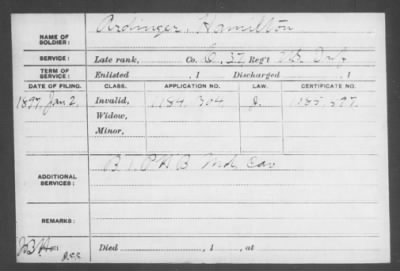 NAME OF SOLDIER: Ardinger, Hamilton
SERVICE: Late rank, Co. C, 37 Reg't Inf
TERM OF SERVICE: Enlisted , 1 Discharged , 1
DATE OF FILING. CLASS. APPLICATION NO. LAW. CERTIFICATE NO.
1897, Jan 2, Invalid, 1184,304
Widow,
Minor,
ADDITIONAL SERVICES: B 1, P H B Md. Cav
REMARKS:
Died , 1 , at